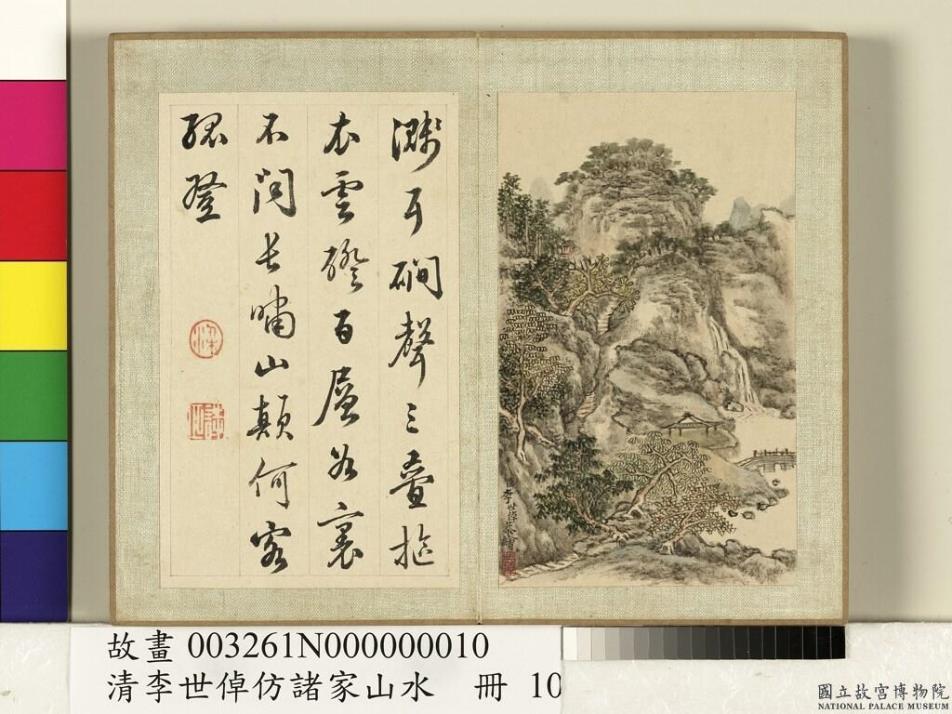 濺耳磵聲三疊摳
衣雲磴百層谷裏
不聞長嘯山顛何客
孤登
李世倬
故畫 003261N000000010
清李世倬仿諸家山水 冊 10
國立故宮博物院
NATIONAL PALACE MUSEUM